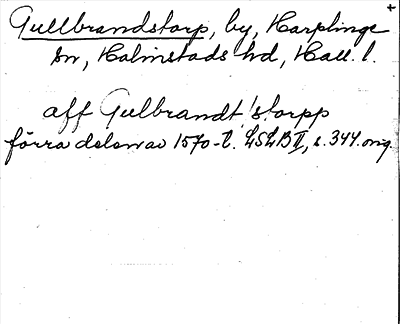 Gullbrandstorp, by, Harplinge
sn, Halmstads hd, Hall. l.
aff Gulbrandt storpp
förra delen av 1570-t. LSLB II, s. 344. orig.